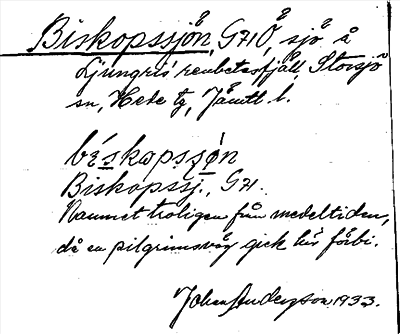 Biskopssjön, G41Ö, sjö å
Ljungris renbetesfjäll, Storsjö
sn, Hede tg, Jämtl. l.
béskopsṣøn
Biskopssj., G41.
Namnet troligen från medeltiden,
då en pilgrimsväg gick här förbi.
Johan Anderson 1933.